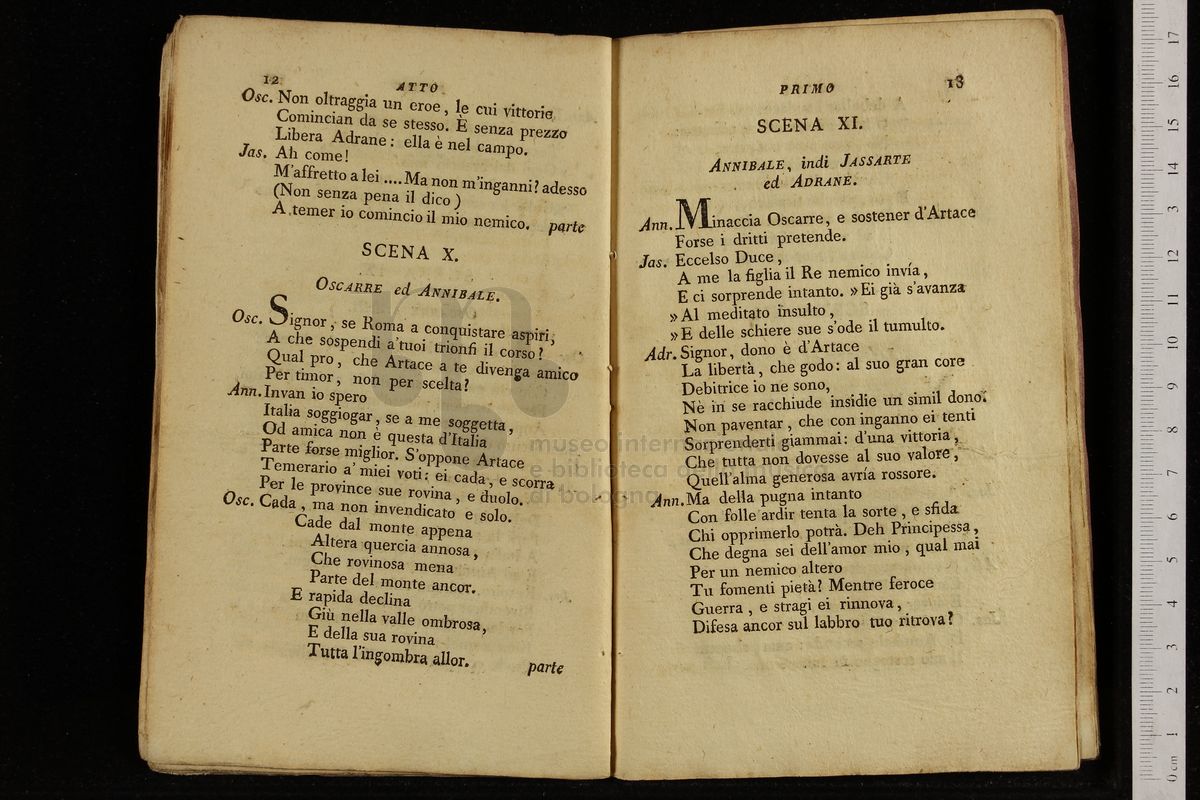 12
ATTO
Osc. Non oltraggia un eroe, le cui vittorie
Comincian da se stesso. È senza prezzo
Libera Adrane: ella è nel campo.
Jas. Ah come!
M'affretto a lei .... Ma non m'inganni? adesso
(Non senza pena il dico)
A temer io comincio il mio nemico. parte
SCENA X.
OSCARRE ed ANNIBALE.
Osc. Signor, se Roma a conquistare aspiri,
A che sospendi a'tuoi trionfi il corso?
Qual pro, che Artace a te divenga amico
Per timor, non per scelta?
Ann. Invan io spero
Italia soggiogar, se a me soggetta,
Od amica non è questa d'Italia
Parte forse miglior. S'oppone Artace
Temerario a' miei voti: ei cada, e scorra
Per le province sue rovina, e duolo.
Osc. Cada, ma non invendicato e solo.
Cade dal monte appena
Altera quercia annosa,
Che rovinosa mena
Parte del monte ancor.
E rapida declina
Giù nella valle ombrosa,
E della sua rovina
Tutta l'ingombra allor. parte
PRIMO
13
SCENA XI.
ANNIBALE, indi JASSARTE
ed ADRANE.
Ann. Minaccia Oscarre, e sostener d'Artace
Forse i dritti pretende.
Jas. Eccelso Duce,
A me la figlia il Re nemico invía,
E ci sorprende intanto. » Ei già s'avanza
» Al meditato insulto,
» E delle schiere sue s'ode il tumulto.
Adr. Signor, dono è d'Artace
La libertà, che godo: al suo gran core
Debitrice io ne sono,
Nè in se racchiude insidie un simil dono.
Non paventar, che con inganno ei tenti
Sorprenderti giammai: d'una vittoria,
Che tutta non dovesse al suo valore,
Quell'alma generosa avría rossore.
Ann. Ma della pugna intanto
Con folle ardir tenta la sorte, e sfida
Chi opprimerlo potrà. Deh Principessa,
Che degna sei dell'amor mio, qual mai
Per un nemico altero
Tu fomenti pietà? Mentre feroce
Guerra, e stragi ei rinnova,
Difesa ancor sul labbro tuo ritrova?
museo internazionale
e biblioteca della musica
di bologna
0 cm 1 2 3 4 5 6 7 8 9 10 11 12 13 14 15 16 17